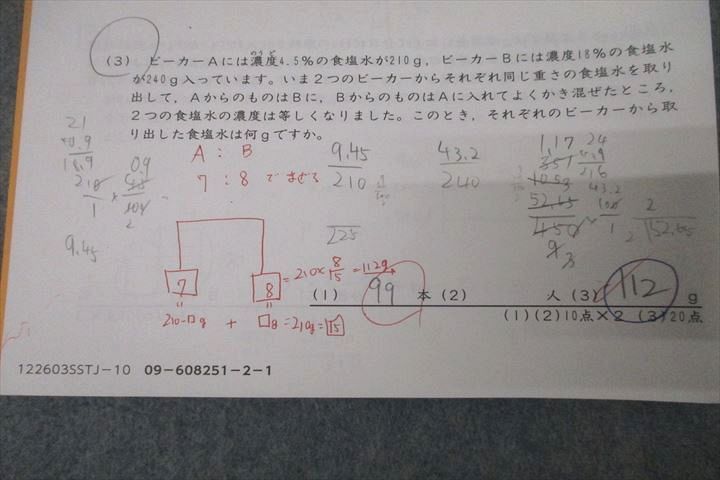 (3) ビーカーAには濃度4.5%の食塩水が210g，ビーカーBには濃度18%の食塩水
が240g入っています。いま2つのビーカーからそれぞれ同じ重さの食塩水を取り
出して，AからのものはBに，BからのものはAに入れてよくかき混ぜたところ，
2つの食塩水の濃度は等しくなりました。このとき，それぞれのビーカーから取
り出した食塩水は何gですか。
21
0.9
18.9
A : B
7 : 8 でまぜる
9.45
210
225
43.2
240
1.17
351
1053
52.65
450
24
216
43.2
100
1
2
2 52.65
210
1
0.9
2
9.45
7
8
=210×8/15=112g
210-□g + □g=210g=15
(1) 99 本 (2) 人 (3) 112 g
(1)(2)10点×2 (3)20点
122603SSTJ-10 09-608251-2-1